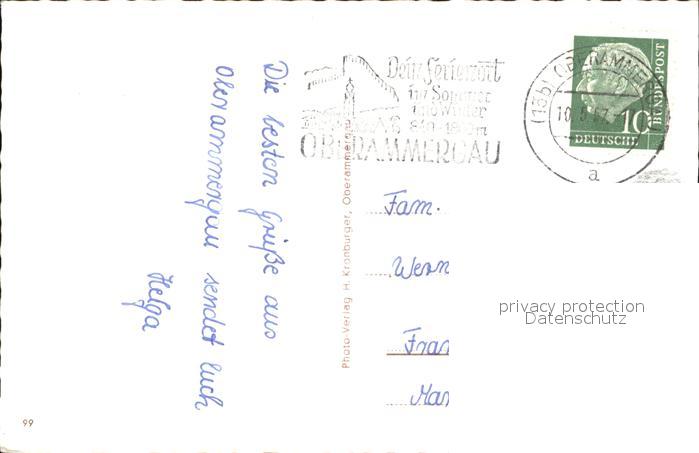 Die besten Grüße aus
Oberammergau sendet Euch
Helga
Dein Ferienort
im Sommer
und Winter
840-1800m
OBERAMMERGAU
(13b) OBERAMMERGAU
a
10
DEUTSCHE
BUNDESPOST
Photo-Verlag H. Kronburger, Oberammergau
Fam.
Wern
Fran
Mar
privacy protection
Datenschutz
99